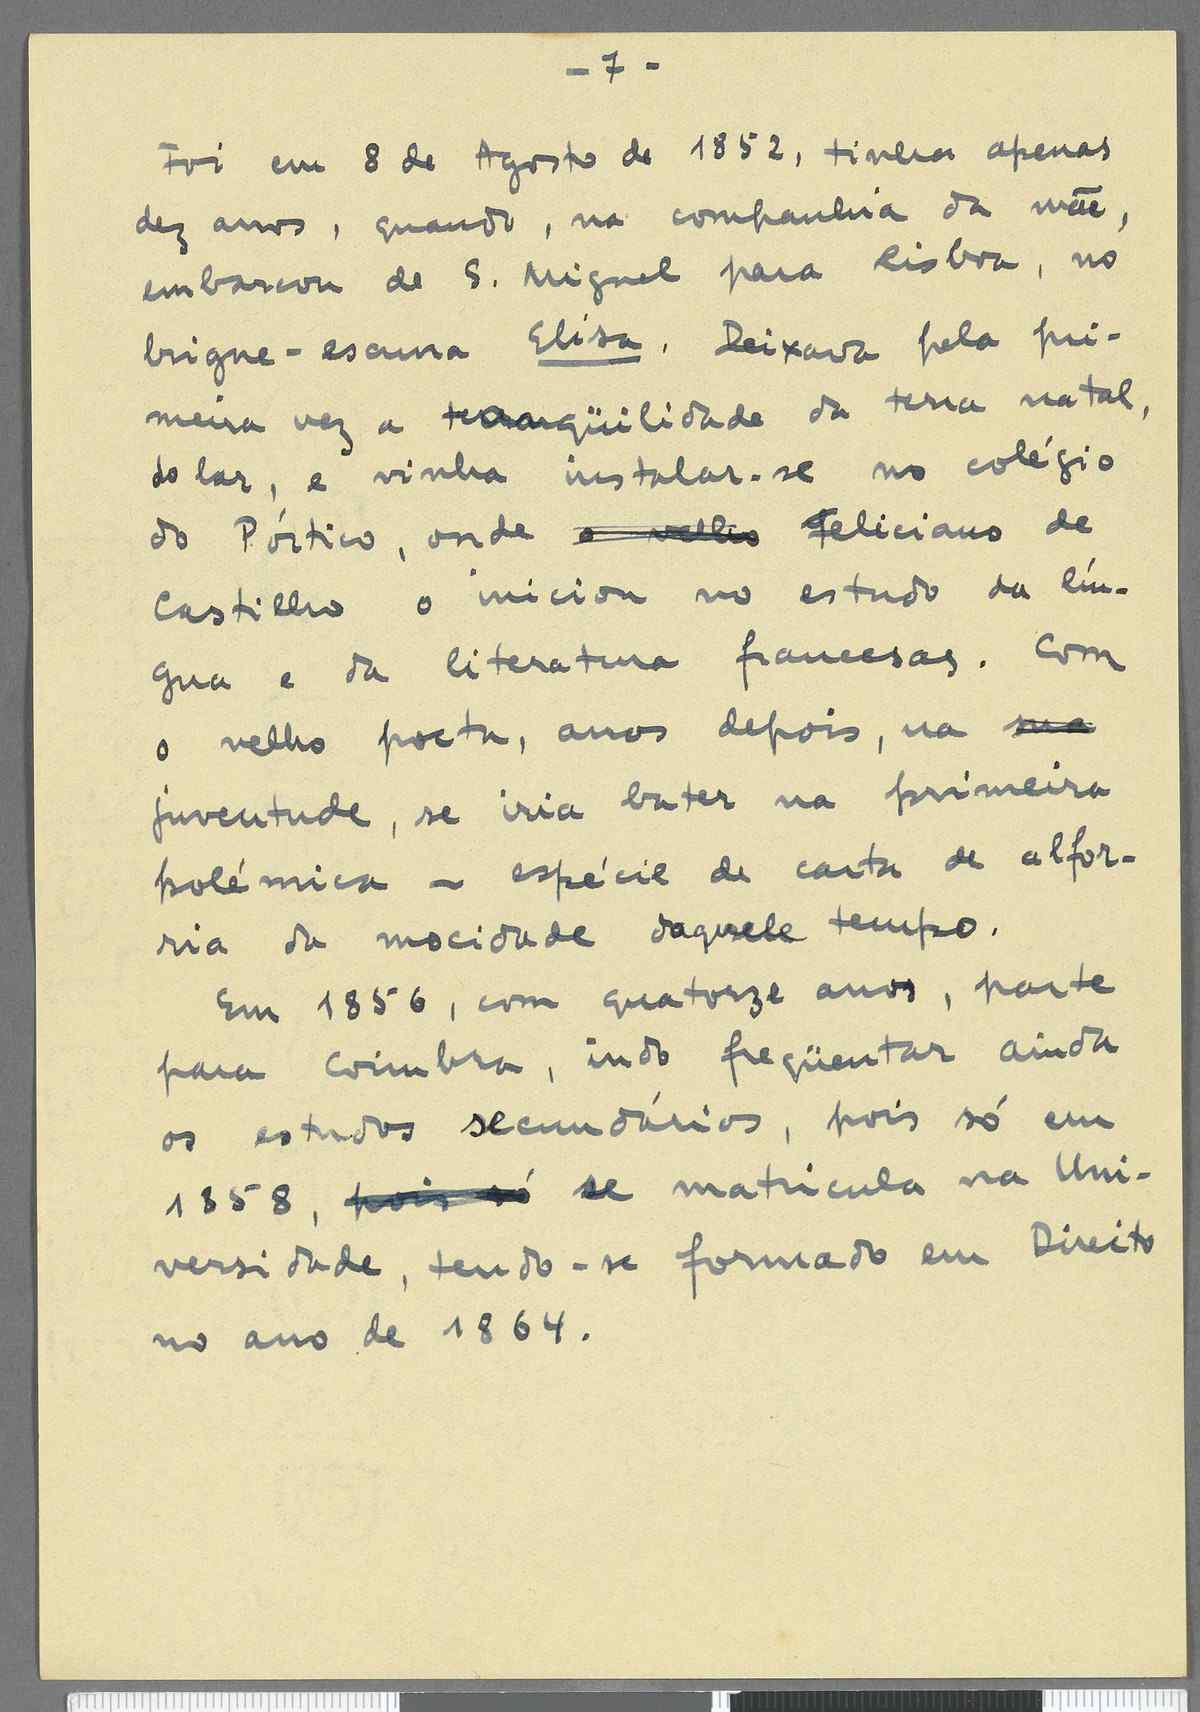 - 7 -
Foi em 8 de Agosto de 1852, tinha apenas
dez anos, quando, na companhia da mãe,
embarcou de S. Miguel para Lisboa, no
brigue-escuna Elisa. Deixava pela pri-
meira vez a tranqüilidade da terra natal,
do lar, e vinha instalar-se no colégio
do Pórtico, onde o velho Feliciano de
Castilho o iniciou no estudo da lín-
gua e da literatura francesas. Com
o velho poeta, anos depois, na sua
juventude, se iria bater na primeira
polémica - espécie de carta de alfor-
ria da mocidade daquele tempo.
Em 1856, com quatorze anos, parte
para Coimbra, indo freqüentar ainda
os estudos secundários, pois só em
1858, pois só se matricula na Uni-
versidade, tendo-se formado em Direito
no ano de 1864.